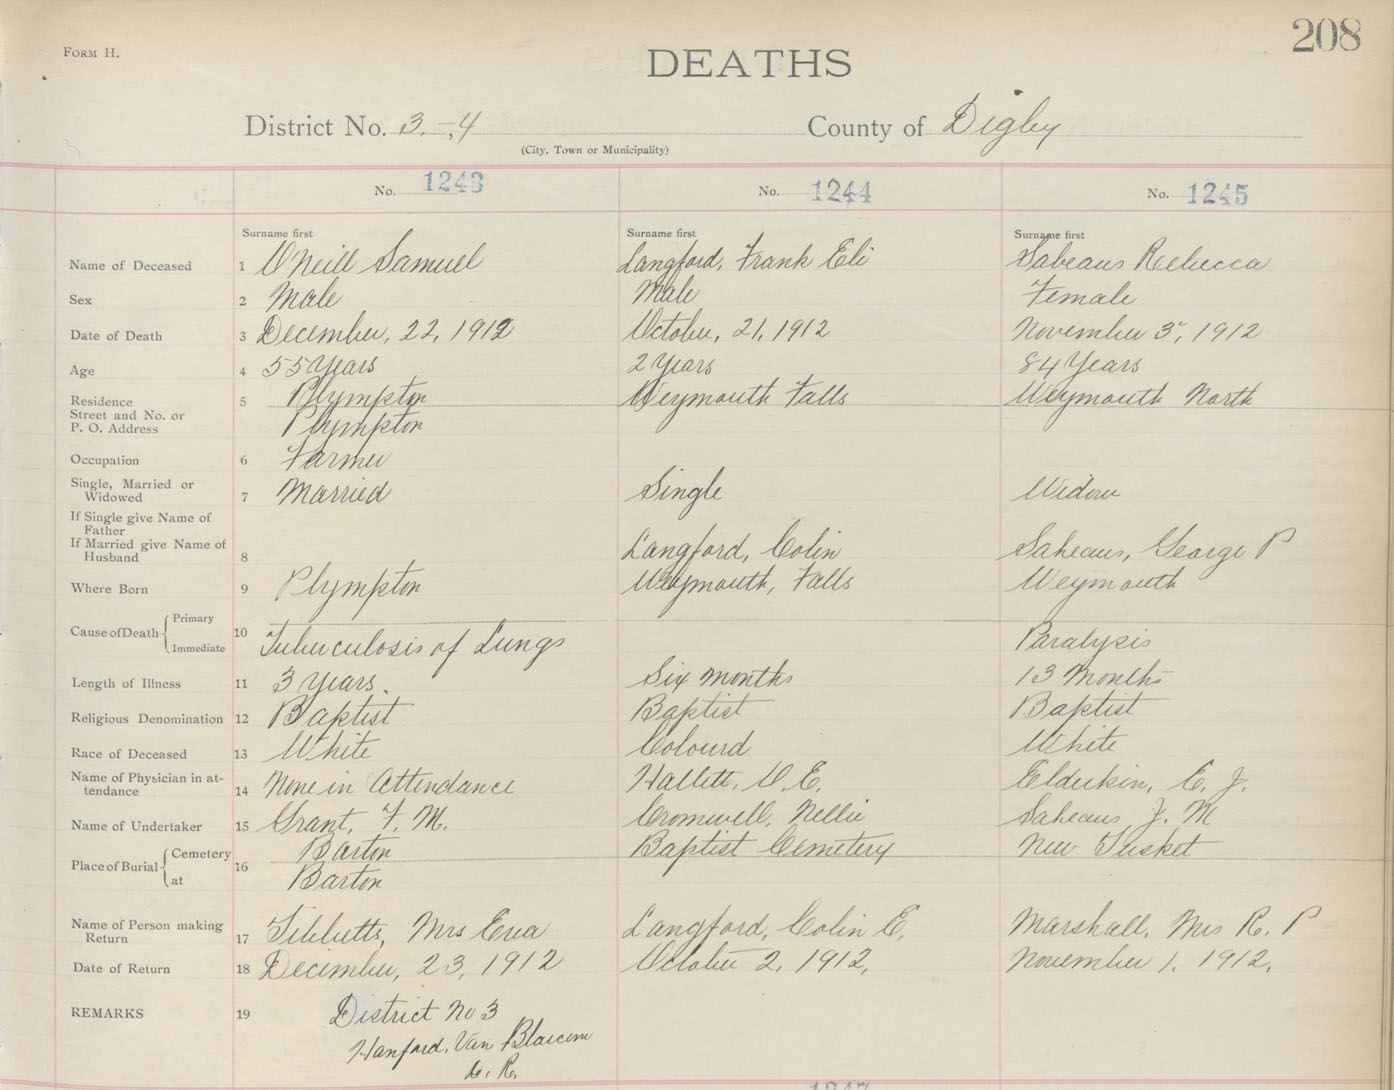 208
FORM H.
DEATHS
District No. 3.-,4 County of Digby
(City, Town or Municipality)
No. 1243 No. 1244 No. 1245
Surname first Surname first Surname first
Name of Deceased 1 O'Neill Samuel Langford, Frank Eli Sabeaus Rebecca
Sex 2 Male Male Female
Date of Death 3 December, 22, 1912 October, 21, 1912 November 3, 1912
Age 4 55 Years 2 Years 84 Years
Residence 5 Plympton Weymouth Falls Weymouth North
Street and No. or
P. O. Address Plympton
Occupation 6 Farmer
Single, Married or
Widowed 7 Married Single Widow
If Single give Name of
Father
If Married give Name of
Husband 8 Langford, Colin Sabeaus, George P
Where Born 9 Plympton Weymouth, Falls Weymouth
Cause of Death Primary
Immediate 10 Tuberculosis of Lungs Paralysis
Length of Illness 11 3 Years. Six Months 13 Months
Religious Denomination 12 Baptist Baptist Baptist
Race of Deceased 13 White Colourd White
Name of Physician in at-
tendance 14 None in Attendance Hallett, O. E. Elderkin, E. J.
Name of Undertaker 15 Grant, F. M. Cromwell, Nellie Sabeaus J. M
Place of Burial Cemetery 16 Barton Baptist Cemetery New Tusket
at Barton
Name of Person making
Return 17 Tibbetts, Mrs Eva Langford, Colin E. Marshall, Mrs R. P
Date of Return 18 December, 23, 1912 October 2, 1912, November 1, 1912,
REMARKS 19 District No 3
Hanford, Van Blarcom
C. R.
1247